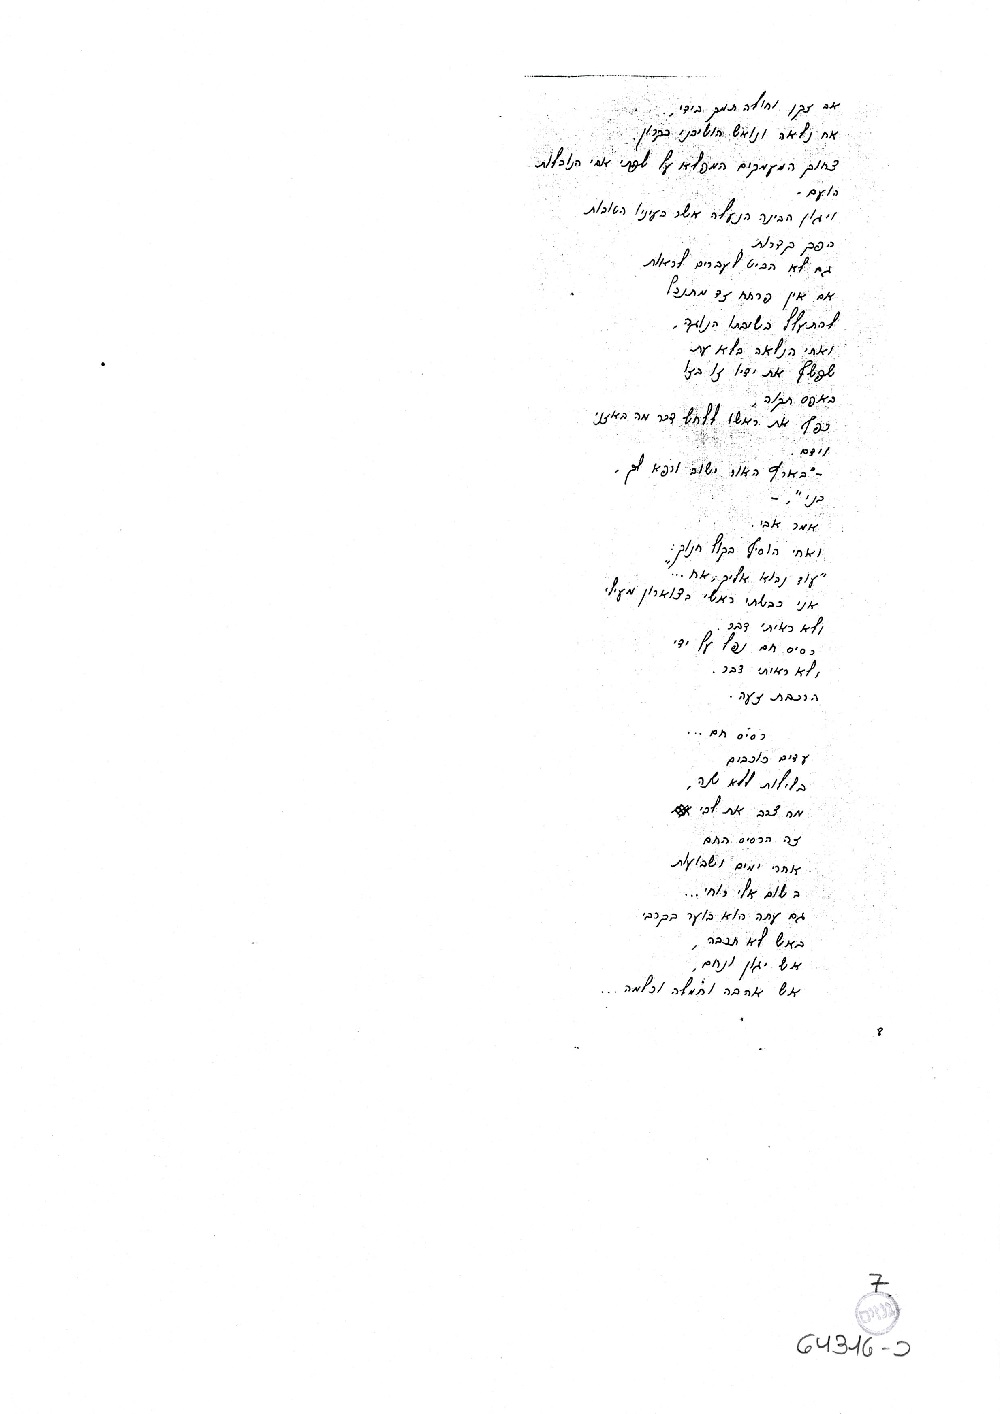 אב זקן וחולה תמך בידי,
אח נלאה ונואש הושיבני בקרון.
צחוק המעמקים המפליא על שפתי אבי הנובלות
הועם -
ויגון הבינה הנעלה אשר בעיניו הטובות
הפך קדרות,
גם לא הביט לעברים לראות
אם אין פרחח צד מתנכל
להתעלל בשיבתו הנוגה.
ואחי הנלאה בלא עת
שפשף את ידיו זו בזו
באפס תקוה,
כפף את ראשו ללחש דבר מה באזני
וידם.
-"בארץ האור ישוב ורפא לך,
בני", -
אמר אבי.
ואחי הוסיף בקול חנוק:
"עוד נבוא אליך, אח..."
אני כבשתי ראשי בצוארון מעילי
ולא ראיתי דבר.
רסיס חם נפל על ידי
ולא ראיתי דבר.
הרכבת זעה.
רסיס חם ...
עדים כוכבים
בלילות ללא שנה,
מה צרב את לבי
זה הרסיס החם
אחרי ימים ושבועות
בשוב אלי רוחי...
גם עתה הוא בוער בקרבי
באש לא תכבה,
אש יגון ונחם,
אש אהבה וחמלה וכלמה...
8
7
גנזים
64316-כ